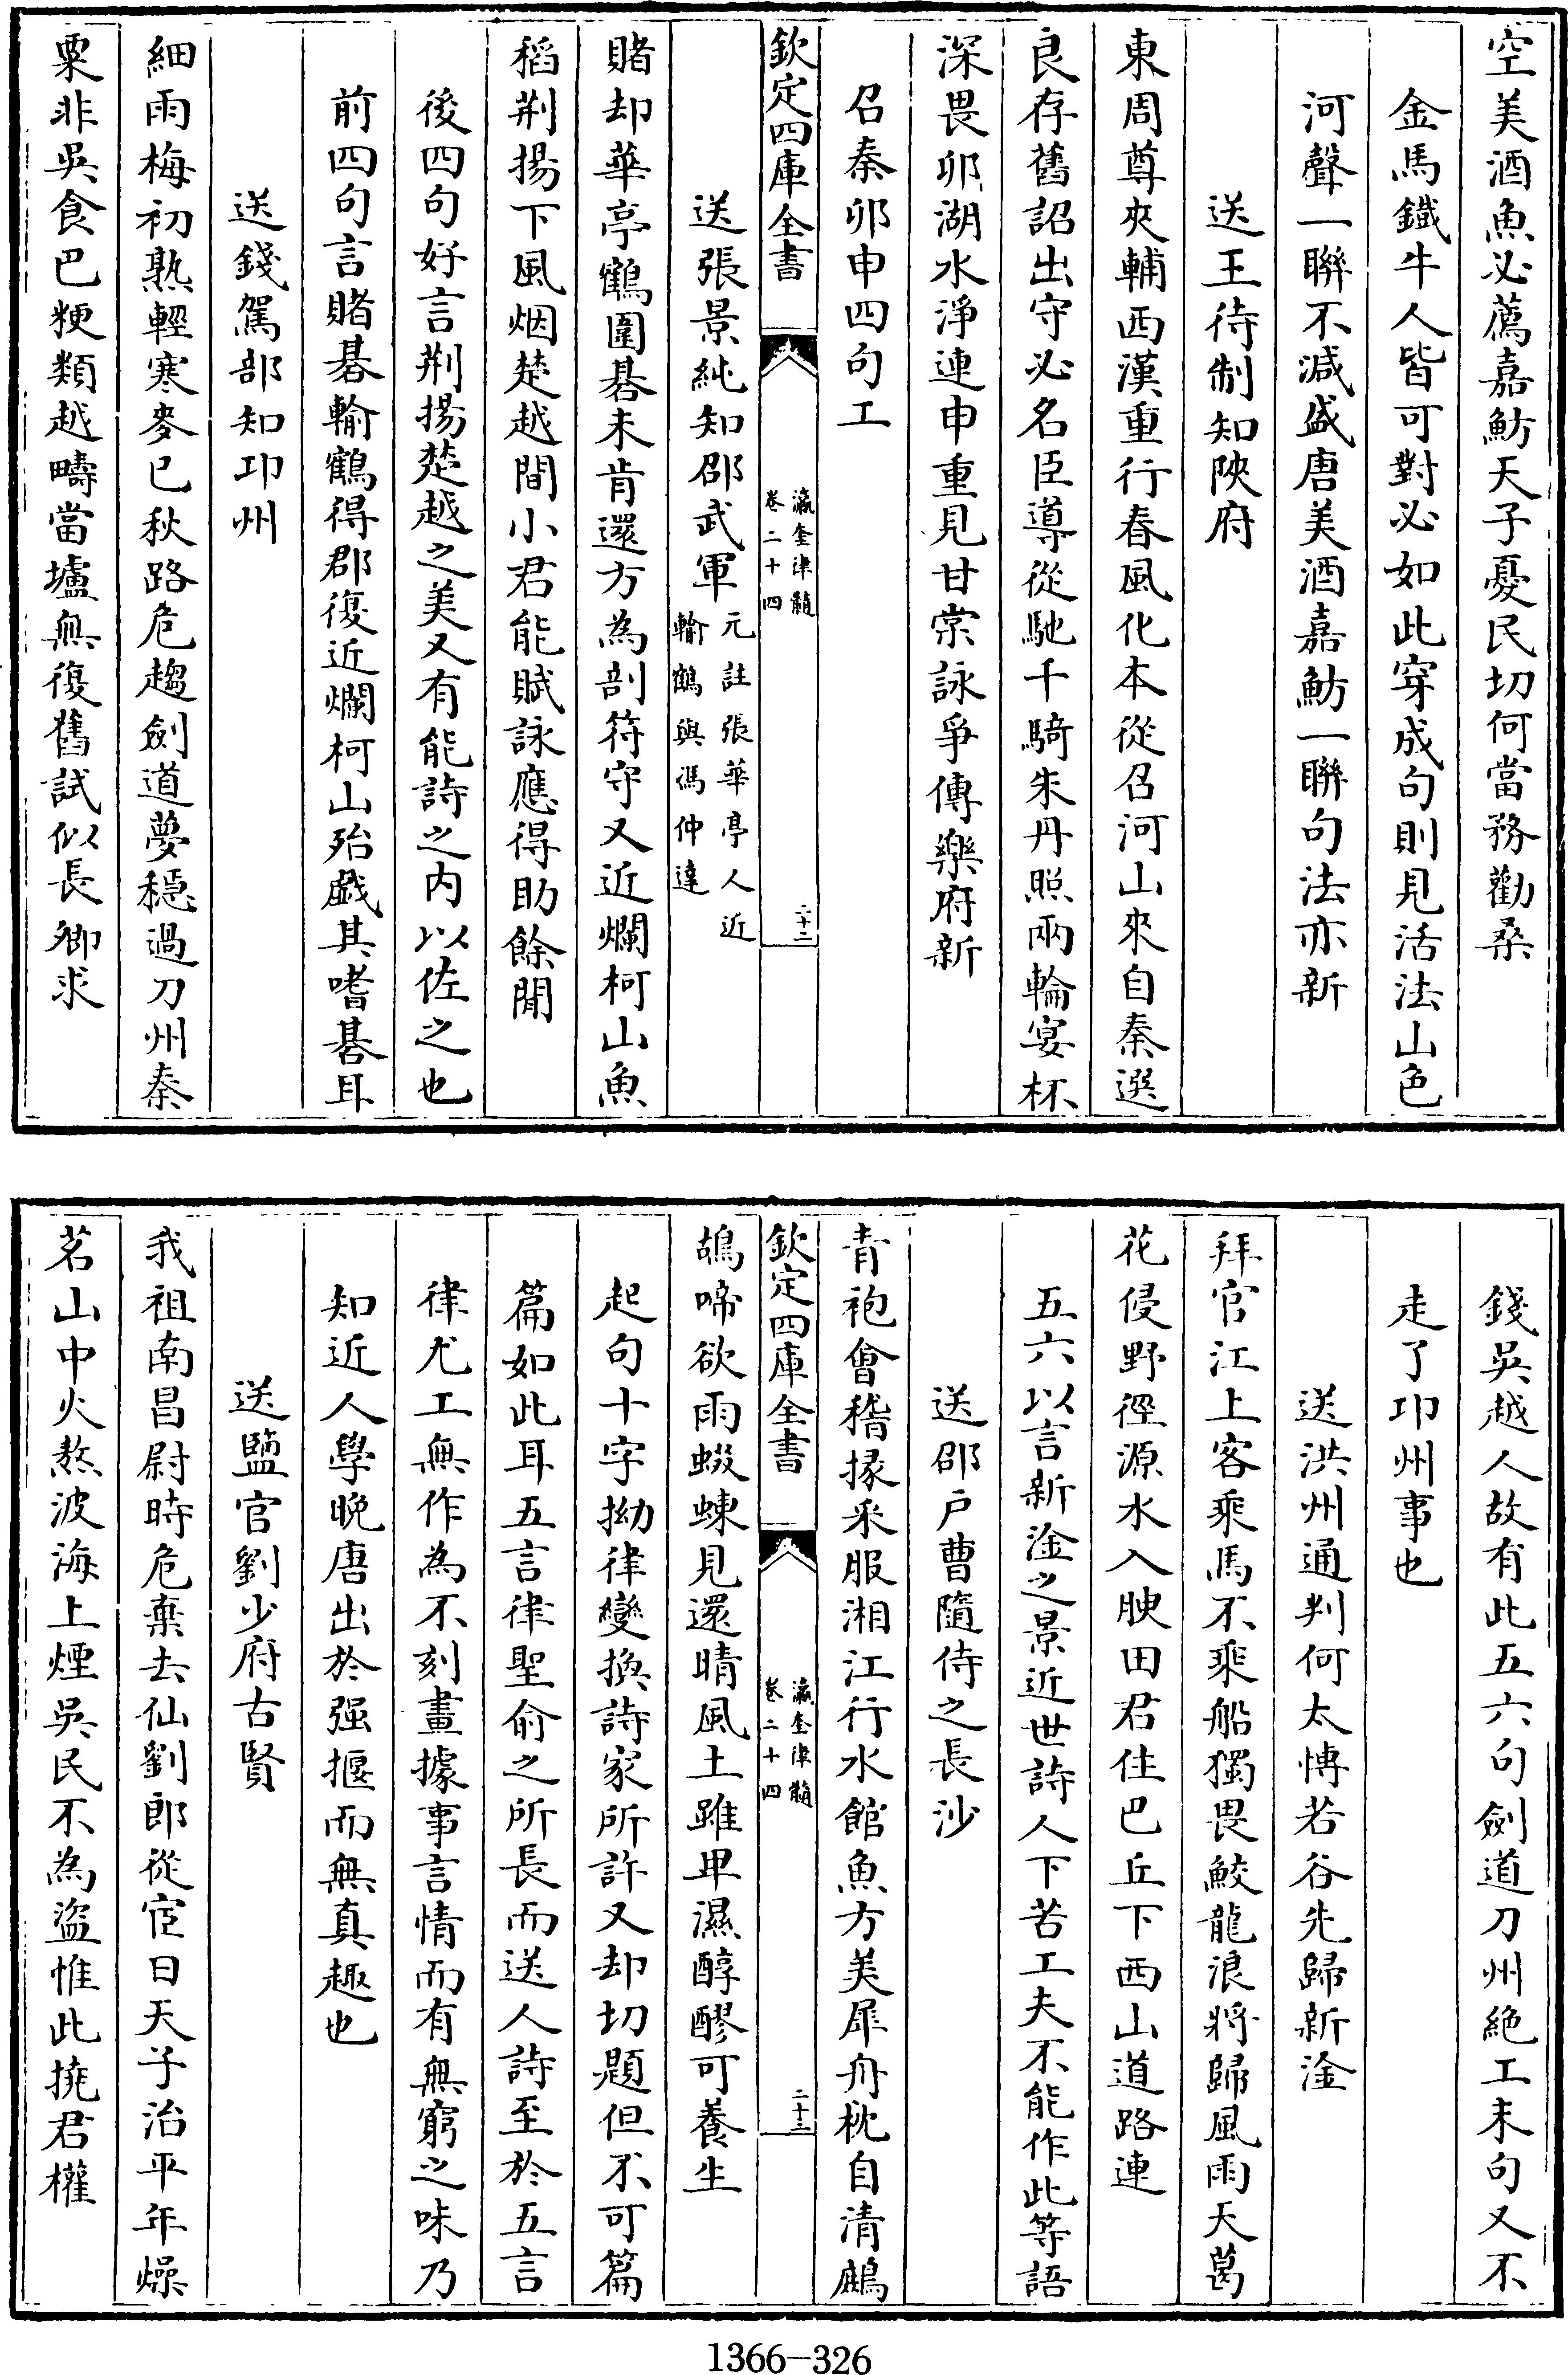 空美酒魚必薦嘉魴天子憂民切何當務勸桑
金馬鐵牛人皆可對必如此穿成句則見活法山色
河聲一聯不減盛唐美酒嘉魴一聯句法亦新
送王待制知陜府
東周尊夾輔西漢重行春風化本從召河山來自秦選
良存舊詔出守必名臣導從馳千騎朱丹照兩輪宴杯
深畏卯湖水淨連申重見甘棠詠爭傳樂府新
召秦卯申四句工
欽定四庫全書
瀛奎律髓
卷二十四
二十二
送張景純知邵武軍
元註張華亭人近
輸鶴與馮仲達
賭却華亭鶴圍棊未肯還方為剖符守又近爛柯山魚
稻荆揚下風烟楚越間小君能賦詠應得助餘閒
後四句好言荆揚楚越之美又有能詩之内以佐之也
前四句言賭棊輸鶴得郡復近爛柯山殆戲其嗜棊耳
送錢駕部知卭州
細雨梅初熟輕寒麥已秋路危趨劍道夢穩過刀州秦
粟非吳食巴粳類越疇當壚無復舊試似長卿求
錢吳越人故有此五六句劍道刀州絶工末句又不
走了卭州事也
送洪州通判何太博若谷先歸新淦
拜官江上客乘馬不乘船獨畏鮫龍浪將歸風雨天葛
花侵野徑源水入腴田君住巴丘下西山道路連
五六以言新淦之景近世詩人下苦工夫不能作此等語
送邵户曹隨侍之長沙
青袍會稽掾采服湘江行水館魚方美犀舟枕自清鷓
欽定四庫全書
瀛奎律髓
卷二十四
二十三
鴣啼欲雨蝃蝀見還晴風土雖卑濕醇醪可養生
起句十字拗律變換詩家所許又却切題但不可篇
篇如此耳五言律聖俞之所長而送人詩至於五言
律尤工無作為不刻畫據事言情而有無窮之味乃
知近人學晚唐出於强揠而無真趣也
送鹽官劉少府古賢
我祖南昌尉時危棄去仙劉郎從宦日天子治平年燥
茗山中火熬波海上煙吳民不為盜惟此撓君權
1366-326